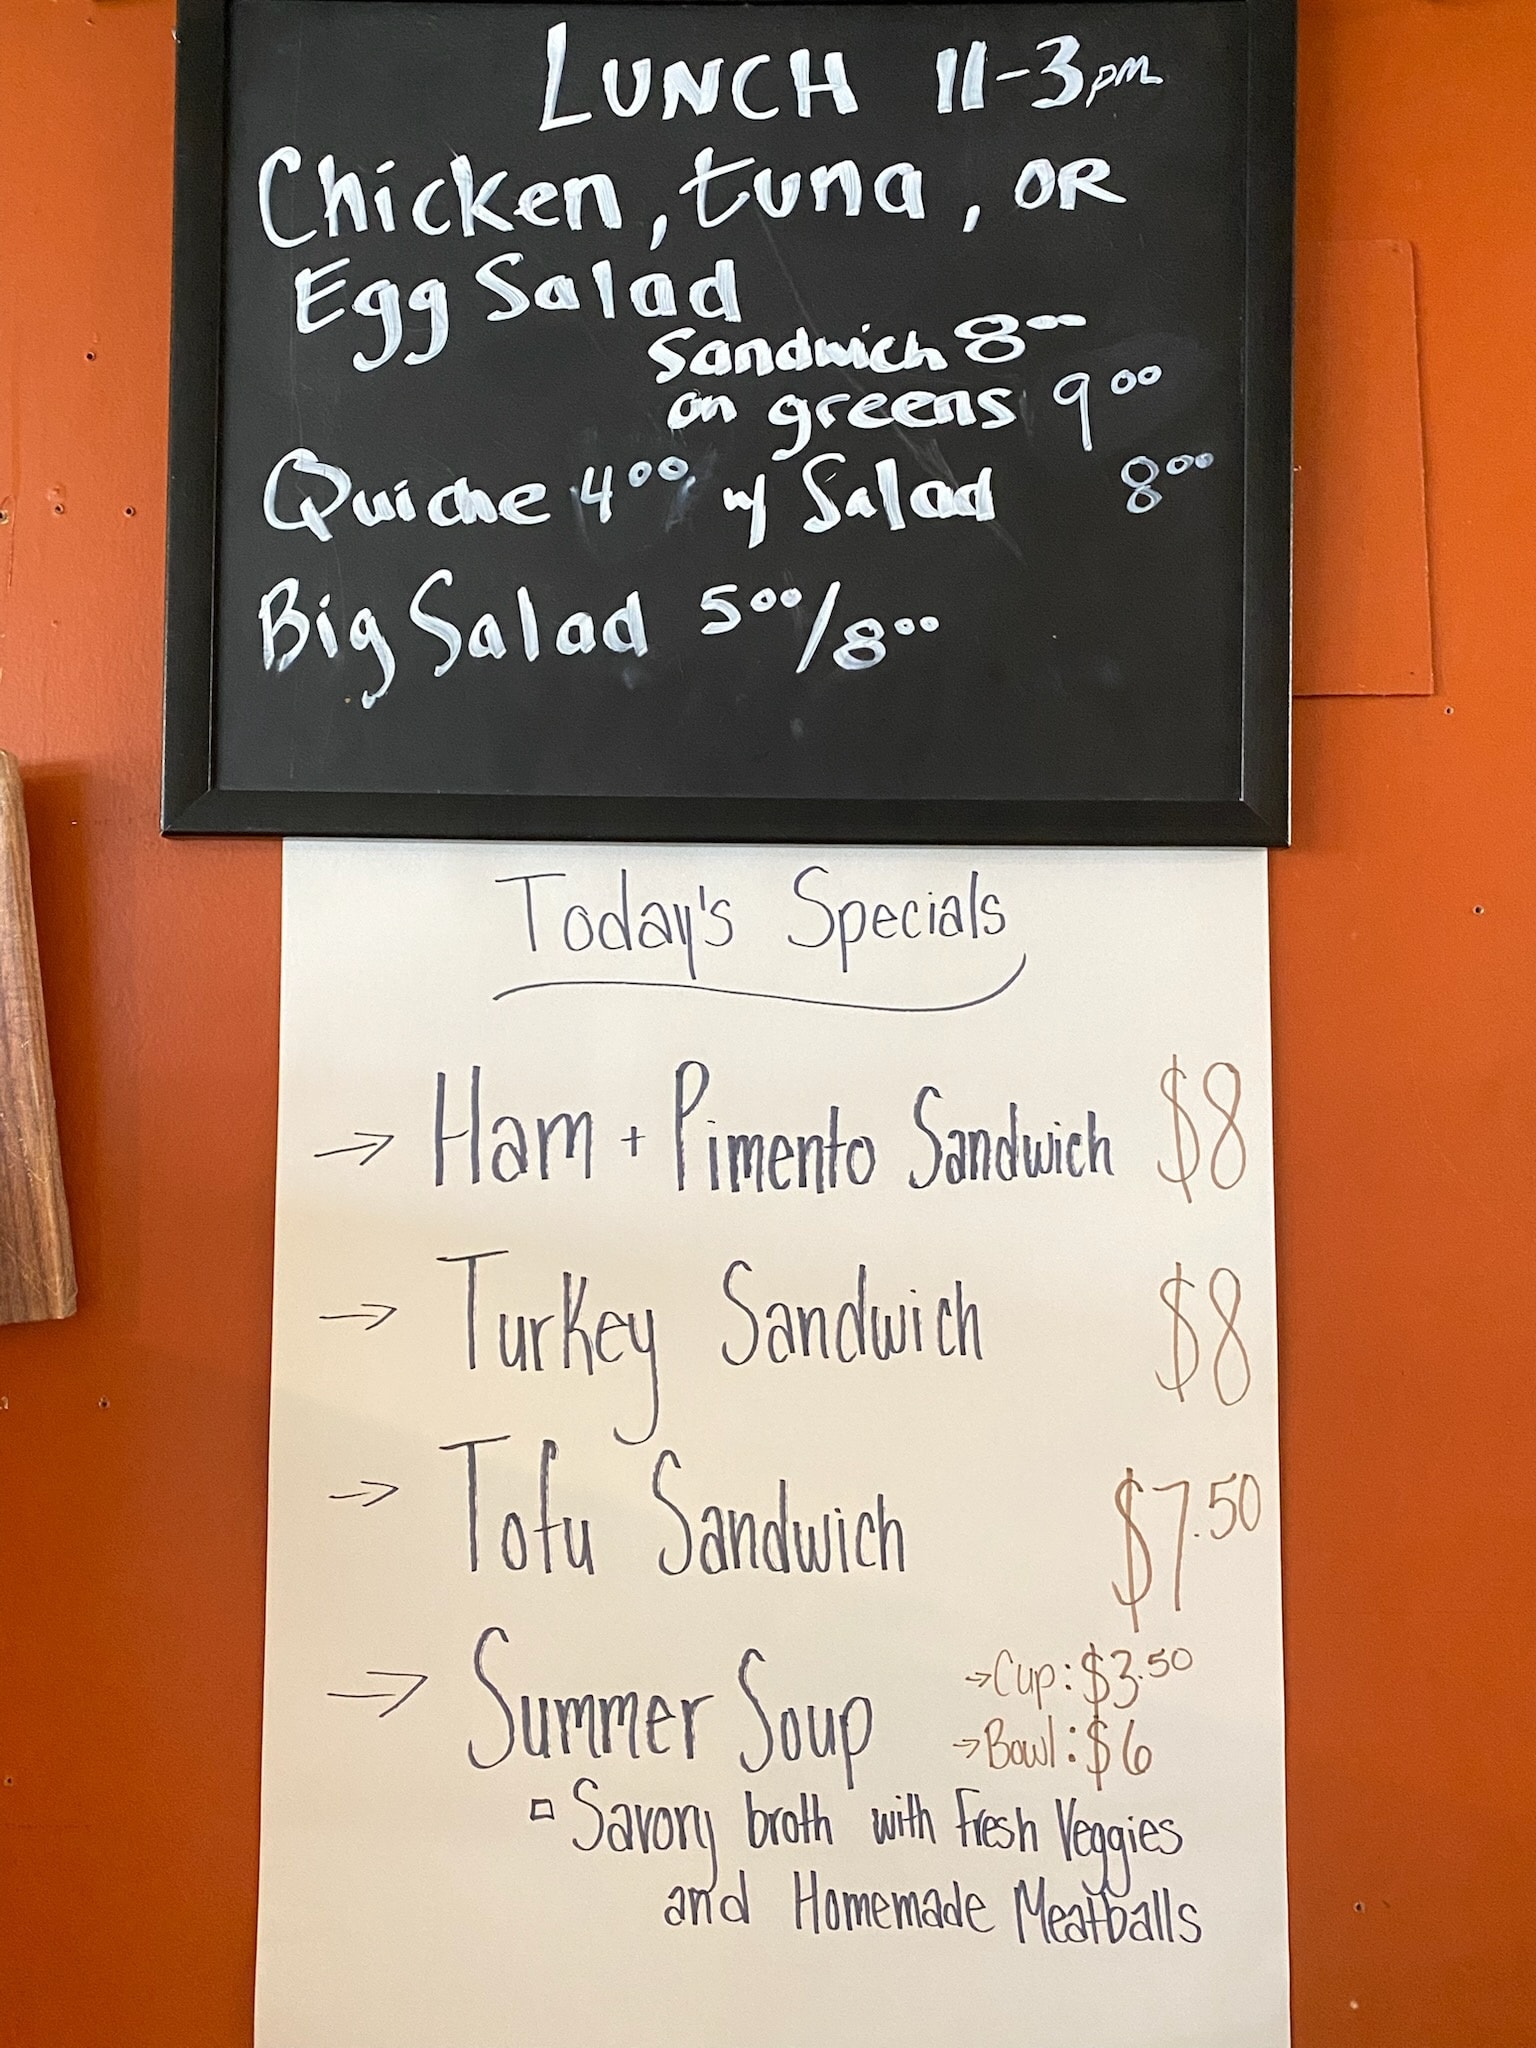 LUNCH 11-3pm
Chicken, tuna, OR
Egg Salad
Sandwich 8⁰⁰
on greens 9⁰⁰
Quiche 4⁰⁰ w/ Salad 8⁰⁰
Big Salad 5⁰⁰/8⁰⁰
Today's Specials
→ Ham + Pimento Sandwich $8
→ Turkey Sandwich $8
→ Tofu Sandwich $7.50
→ Summer Soup →Cup: $3.50
→Bowl: $6
▫ Savory broth with Fresh Veggies
and Homemade Meatballs